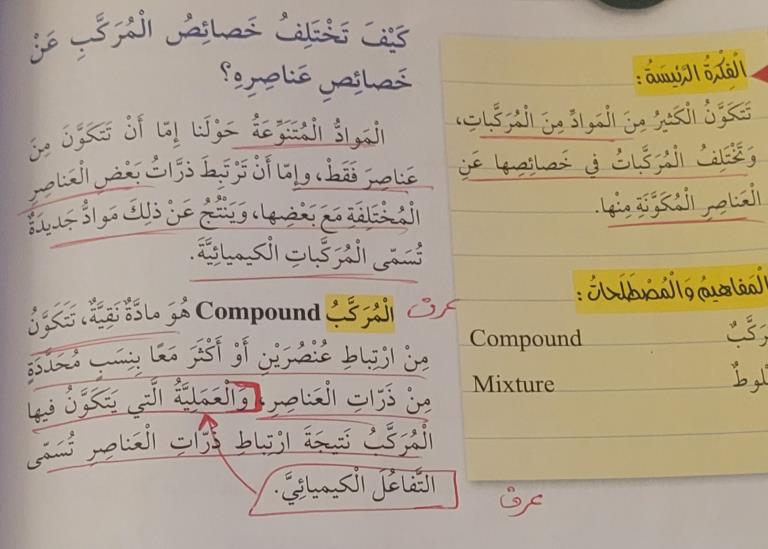 الْفِكْرَةُ الرَّئِيسَةُ:
تَتَكَوَّنُ الْكَثيرُ مِنَ الْمَوادِّ مِنَ الْمُرَكَّباتِ،
وَتَخْتَلِفُ الْمُرَكَّباتُ في خَصائِصِها عَنِ
الْعَناصِرِ الْمُكَوَّنَةِ مِنْها.
الْمَفاهيمُ وَالْمُصْطَلَحاتُ:
Compound
Mixture
كَيْفَ تَخْتَلِفُ خَصائِصُ الْمُرَكَّبِ عَنْ
خَصائِصِ عَناصِرِهِ؟
الْمَوادُّ الْمُتَنَوِّعَةُ حَوْلَنا إِمّا أَنْ تَتَكَوَّنَ مِنْ
عَناصِرَ فَقَطْ، وإِمّا أَنْ تَرْتَبِطَ ذَرّاتُ بَعْضِ الْعَناصِرِ
الْمُخْتَلِفَةِ مَعَ بَعْضِها، وَيَنْتُجُ عَنْ ذلِكَ مَوادُّ جَديدَةٌ
تُسَمّى الْمُرَكَّباتِ الْكيمِيائِيَّةَ.
الْمُرَكَّبُ Compound هُوَ مادَّةٌ نَقِيَّةٌ، تَتَكَوَّنُ
مِنِ ارْتِباطِ عُنْصُرَيْنِ أَوْ أَكْثَرَ مَعًا بِنِسَبٍ مُحَدَّدَةٍ
مِنْ ذَرّاتِ الْعَناصِرِ، وَالْعَمَلِيَّةُ الَّتي يَتَكَوَّنُ فيها
الْمُرَكَّبُ نَتيجَةَ ارْتِباطِ ذَرّاتِ الْعَناصِرِ تُسَمّى
التَّفاعُلَ الْكيمِيائِيَّ.
عرف
عرف